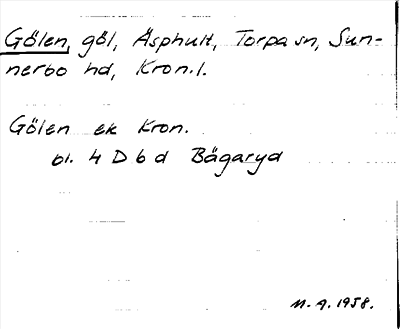 Gölen, göl, Äsphult, Torpa sn, Sun-
nerbo hd, Kron.l.
Gölen ek Kron.
bl. 4 D 6 d Bägaryd
M.A. 1958.